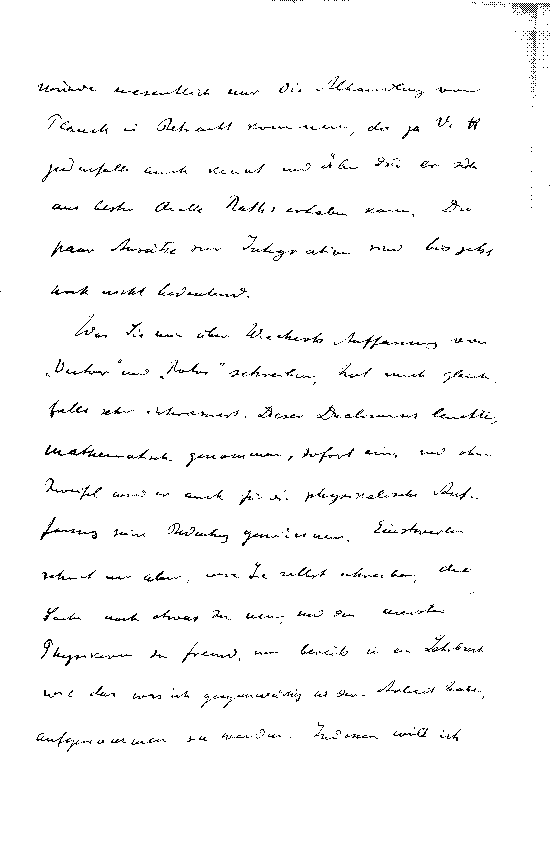 würde wesentlich nur die Abhandlung von
Planck in Betracht kommen, die ja V.
jedenfalls auch kennt und über die er sich
aus bester Quelle Raths erholen kann. Die
paar Ansätze zur Integration sind bis jetzt
noch nicht bedeutend.
Was Sie mir über Wiecherts Auffassung von
„Vector" und „Rotor" schreiben, hat mich gleich-
falls sehr interessirt. Dieser Dualismus leuchtet,
mathematisch genommen, sofort ein, und ohne
Zweifel wird er auch für die physikalische Auf-
fassung seine Bedeutung gewinnen. Einstweilen
scheint mir aber, wie Sie selbst schreiben, die
Sache noch etwas zu neu, und den meisten
Physikern zu fremd, um bereits in ein Lehrbuch
wie das was ich gegenwärtig in der Arbeit habe,
aufgenommen zu werden. Indessen will ich